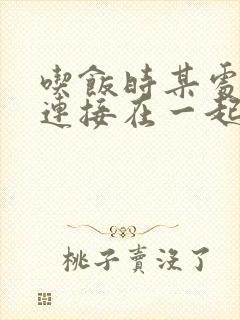 喫飯時某處
連接在一起
桃子賣沒了